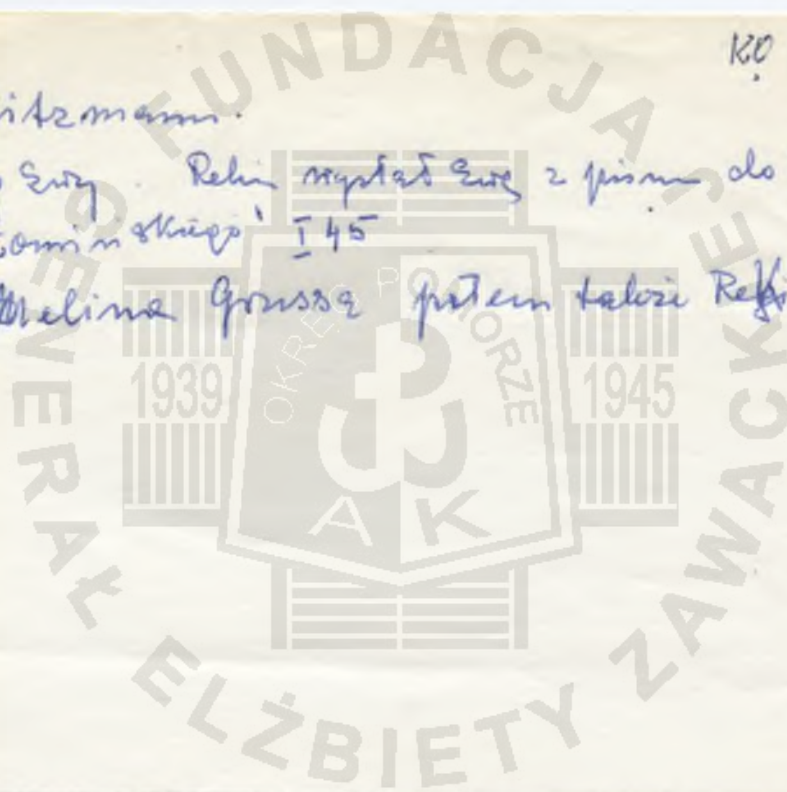 KO
itzmann.
Ewy. Rekin wysłał Ewę z pismem do
omińskiego I 45
Melina Grussa potem także Rek
FUNDACJA GENERAŁ ELŻBIETY ZAWACKIEJ
OKRĘG POMORZE
1939 1945
A K